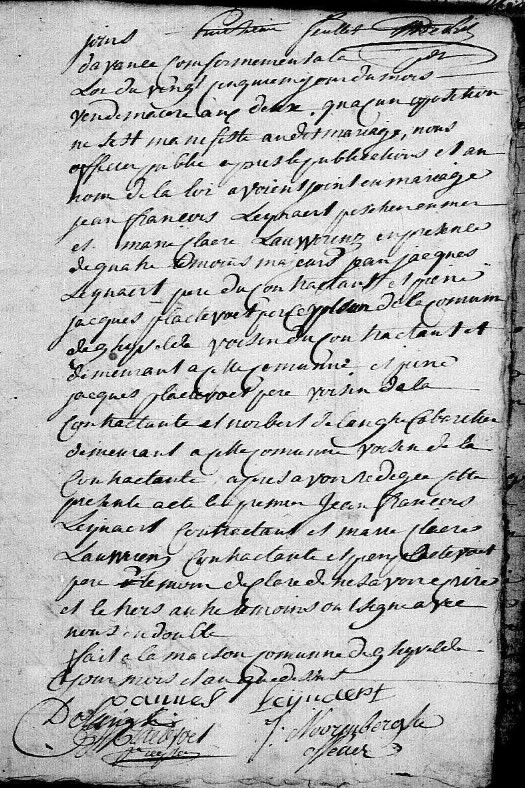 jours huitieme feuillet
d'avance conformement a la
Loi du vingt jour du mois
vendemiaire an deux. qu'aucun opposition
ne se st manifesté audit mariage, nous
officier public apres le publications et au
nom de la loi avoient joint en mariage
jean françois Leijnaert pescheur en mer
et marie claere Lauwerens en presence
de quatre temoins majeurs jean jacques
Leijnaert pere du contractant et piere
jacques placlevoet de la comun
de ghyselde voisin du contractant et
demeurant a cette comunne et piere
jacques placlevoet pere voisin de la
contractante et norbert de langhe Cabaretier
demeurant a cette comunne voisin de la
Contractante apres avoir redegée cette
presente acte le premier Jean françois
Leijnaert Contractant et marie claere
Lauwerens Contractante et placlevoet
pere temoin declare de ne savoir ecrire
et le trois autre temoins ont signe avec
nous en double
fait a la maison comunne de ghyvelde
jour mois et an que dessus
joannes Leijnaert
Delanghe
J. Noormberghe